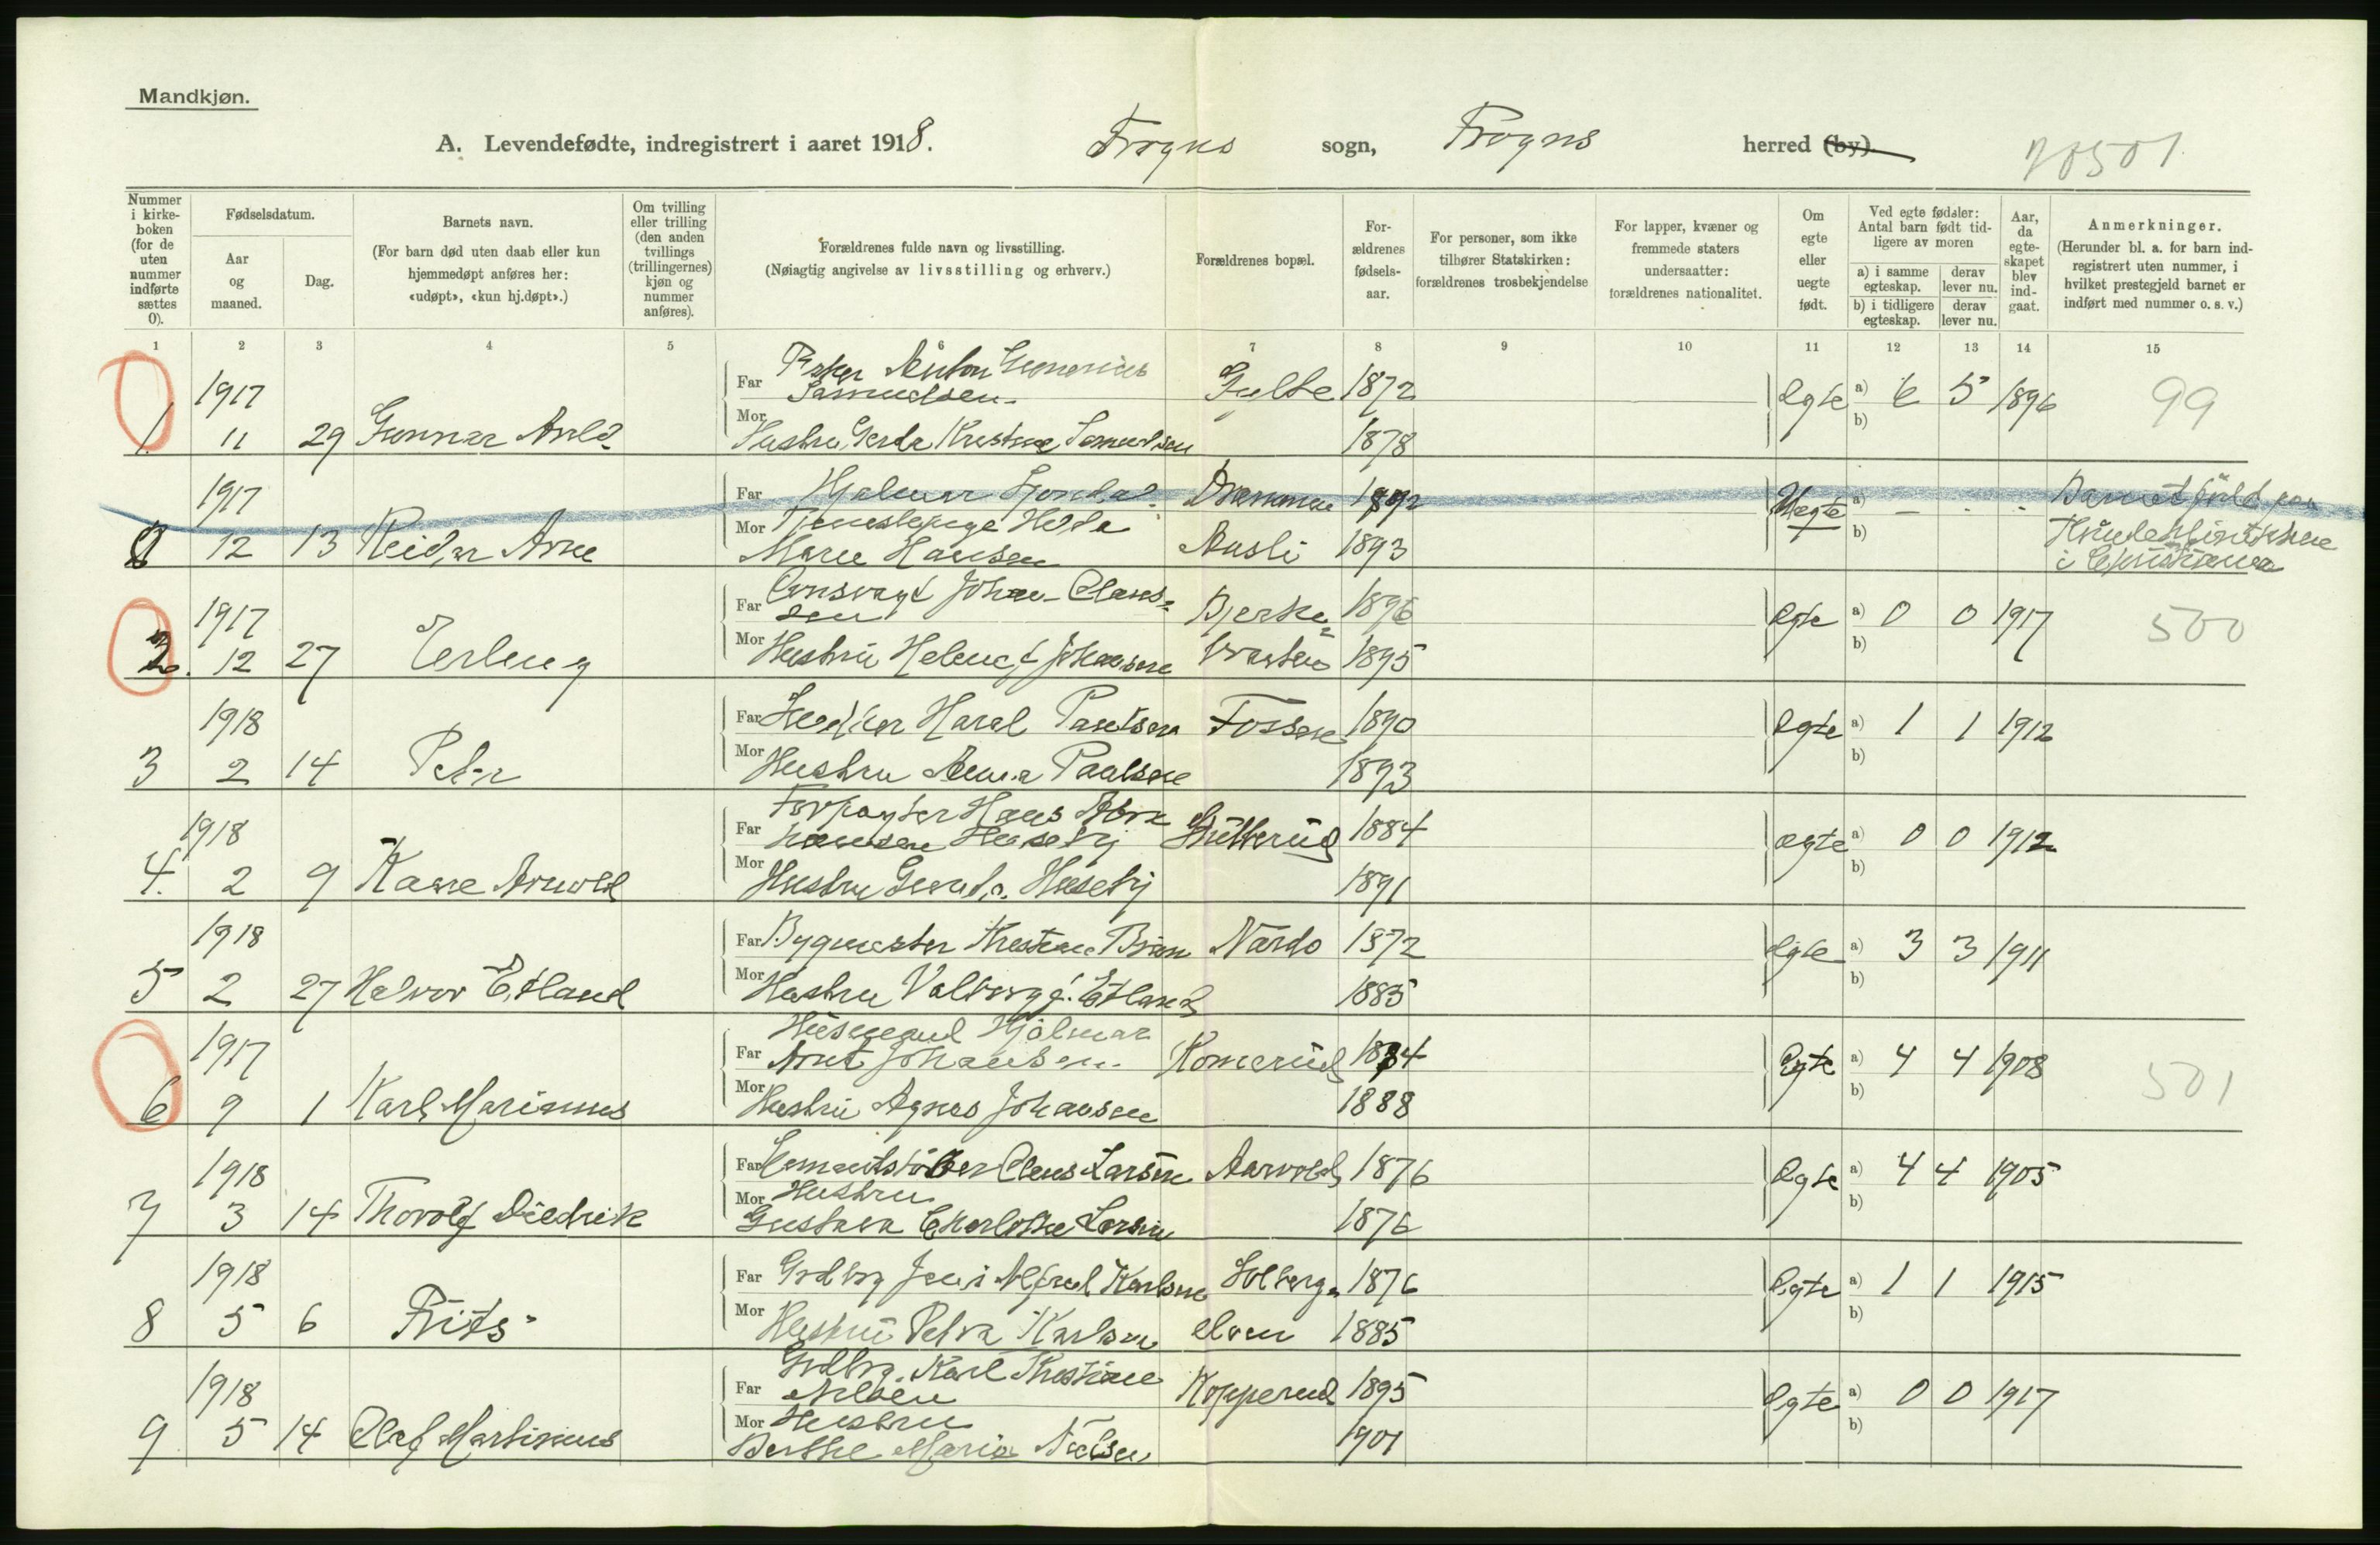 Mandkjøn.
A. Levendefødte, indregistrert i aaret 1918. Frogns sogn, Frogns herred (by).
Nummer i kirkeboken (for de uten nummer indførte sættes 0).
Fødselsdatum.
Aar og maaned.
Dag.
Barnets navn.
(For barn død uten daab eller kun hjemmedøpt anføres her: «udøpt», «kun hj.døpt».)
Om tvilling eller trilling (den anden tvillings (trillingernes) kjøn og nummer anføres).
Forældrenes fulde navn og livsstilling.
(Nøiagtig angivelse av livsstilling og erhverv.)
Forældrenes bopæl.
For-ældrenes fødsels-aar.
For personer, som ikke tilhører Statskirken: forældrenes trosbekjendelse
For lapper, kvæner og fremmede staters undersaatter: forældrenes nationalitet.
Om egte eller uegte født.
Ved egte fødsler: Antal barn født tid-ligere av moren
a) i samme egteskap.
derav lever nu.
b) i tidligere egteskap.
derav lever nu.
Aar, da egte-skapet blev ind-gaat.
Anmerkninger.
(Herunder bl. a. for barn ind-registrert uten nummer, i hvilket prestegjeld barnet er indført med nummer o. s. v.)
1 2 3 4 5 6 7 8 9 10 11 12 13 14 15
1917
Far Fisker Anton
Samuelsen Gylte 1872 Egte a) 6 5 1896 99
1 11 29 Gunnar Mor Hustru Gerda Kristine Samuelsen 1878 b)
1917
Far Hjalmar Drammen 1892 Uegte a) - Barnet født paa
12 13 Reidar Arne Mor Tjenestepige Helda
Marie Hansen 1893 b) Kvindeklinikken
i Christiania
1917
Far Johan
Bjerke 1896 Egte a) 0 0 1917 500
2. 12 27 Erling Mor Hustru Johansen 1895 b)
1918
Far Paulsen Fossen 1890 Egte a) 1 1 1912
3 2 14 Peter Mor Hustru Anna Paulsen 1893 b)
1918
Far Forpagter Hans
Huseby 1884 ægte a) 0 0 1912
4. 2 9 Kaare Arnold Mor Hustru Huseby 1891 b)
1918
Far Bygmester Nordo 1872 Egte a) 3 3 1911
5 2 27 Halvor Etland Mor Hustru Valborg Etland 1885 b)
1917
Far Husmand Hjalmar
Arnt Johansen Komerud 1884 Egte a) 4 4 1908 501
6 9 1 Karl Marinus Mor Hustru Agnes Johansen 1888 b)
1918
Far Cementstøber Claus Larsen Aarvold 1876 Egte a) 4 4 1905
7 3 14 Thorolf Diedrik Mor Hustru
Gustava Charlotte Larsen 1876 b)
1918
Far Grdbrg Jens Alfred Karlsen Solberg- 1876 Egte a) 1 1 1915
8 5 6 Frits Mor Hustru Petra Karlsen elven 1885 b)
1918
Far Grdbrg. Karl Kristian
Nilsen Kopperud 1895 Egte a) 0 0 1917
9 5 14 Olaf Martinius Mor Hustru
Berthe Marie Nielsen 1901 b)